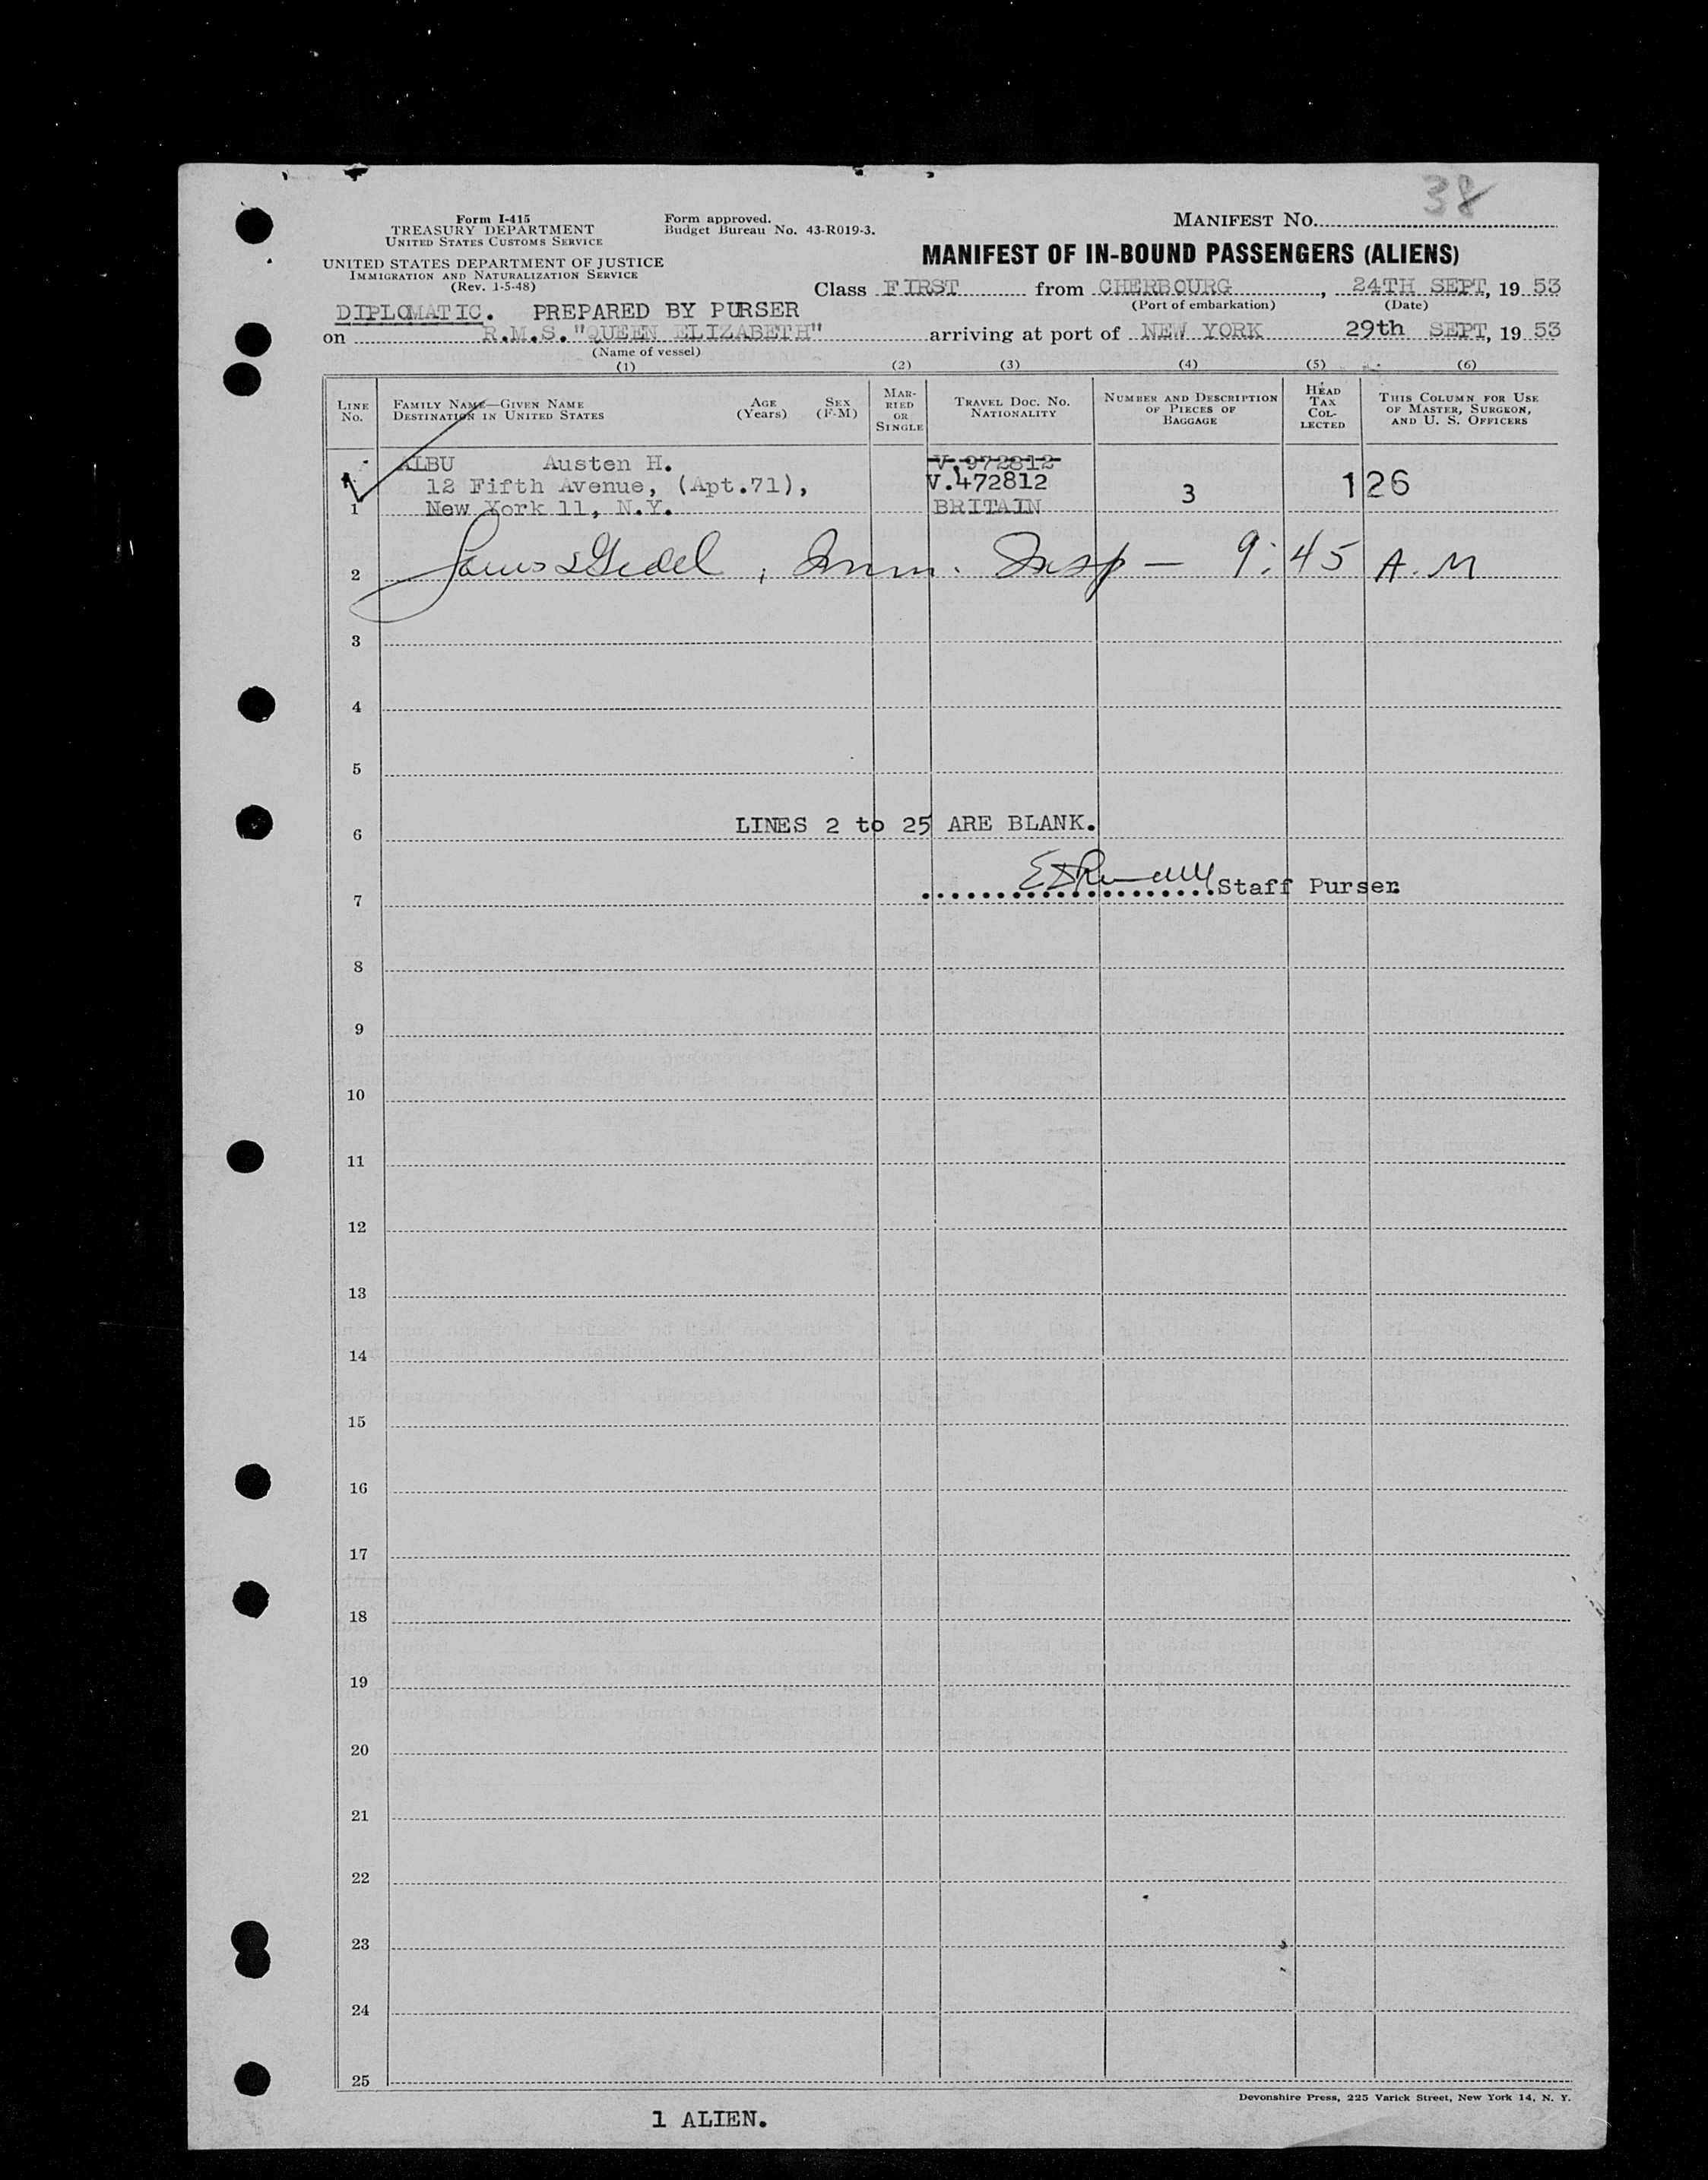 38
Form I-415
TREASURY DEPARTMENT
UNITED STATES CUSTOMS SERVICE
Form approved.
Budget Bureau No. 43-R019-3.
MANIFEST NO.
UNITED STATES DEPARTMENT OF JUSTICE
IMMIGRATION AND NATURALIZATION SERVICE
(Rev. 1-5-48)
MANIFEST OF IN-BOUND PASSENGERS (ALIENS)
Class FIRST from CHERBOURG, 24TH SEPT, 19 53
(Port of embarkation) (Date)
DIPLOMATIC. PREPARED BY PURSER
on R.M.S."QUEEN ELIZABETH" arriving at port of NEW YORK 29th SEPT, 19 53
(Name of vessel)
(1) (2) (3) (4) (5) (6)
LINE NO.
FAMILY NAME—GIVEN NAME
DESTINATION IN UNITED STATES
AGE (Years)
SEX (F-M)
MARRIED OR SINGLE
TRAVEL DOC. NO.
NATIONALITY
NUMBER AND DESCRIPTION OF PIECES OF BAGGAGE
HEAD TAX COLLECTED
THIS COLUMN FOR USE OF MASTER, SURGEON, AND U. S. OFFICERS
ALBU Austen H. V.972812
12 Fifth Avenue, (Apt.71), V.472812 3 126
1 New York 11, N.Y. BRITAIN
2 Imm. Insp — 9:45 A.M
3
4
5
6 LINES 2 to 25 ARE BLANK.
7 Staff Purser
8
9
10
11
12
13
14
15
16
17
18
19
20
21
22
23
24
25
Devonshire Press, 225 Varick Street, New York 14, N. Y.
1 ALIEN.